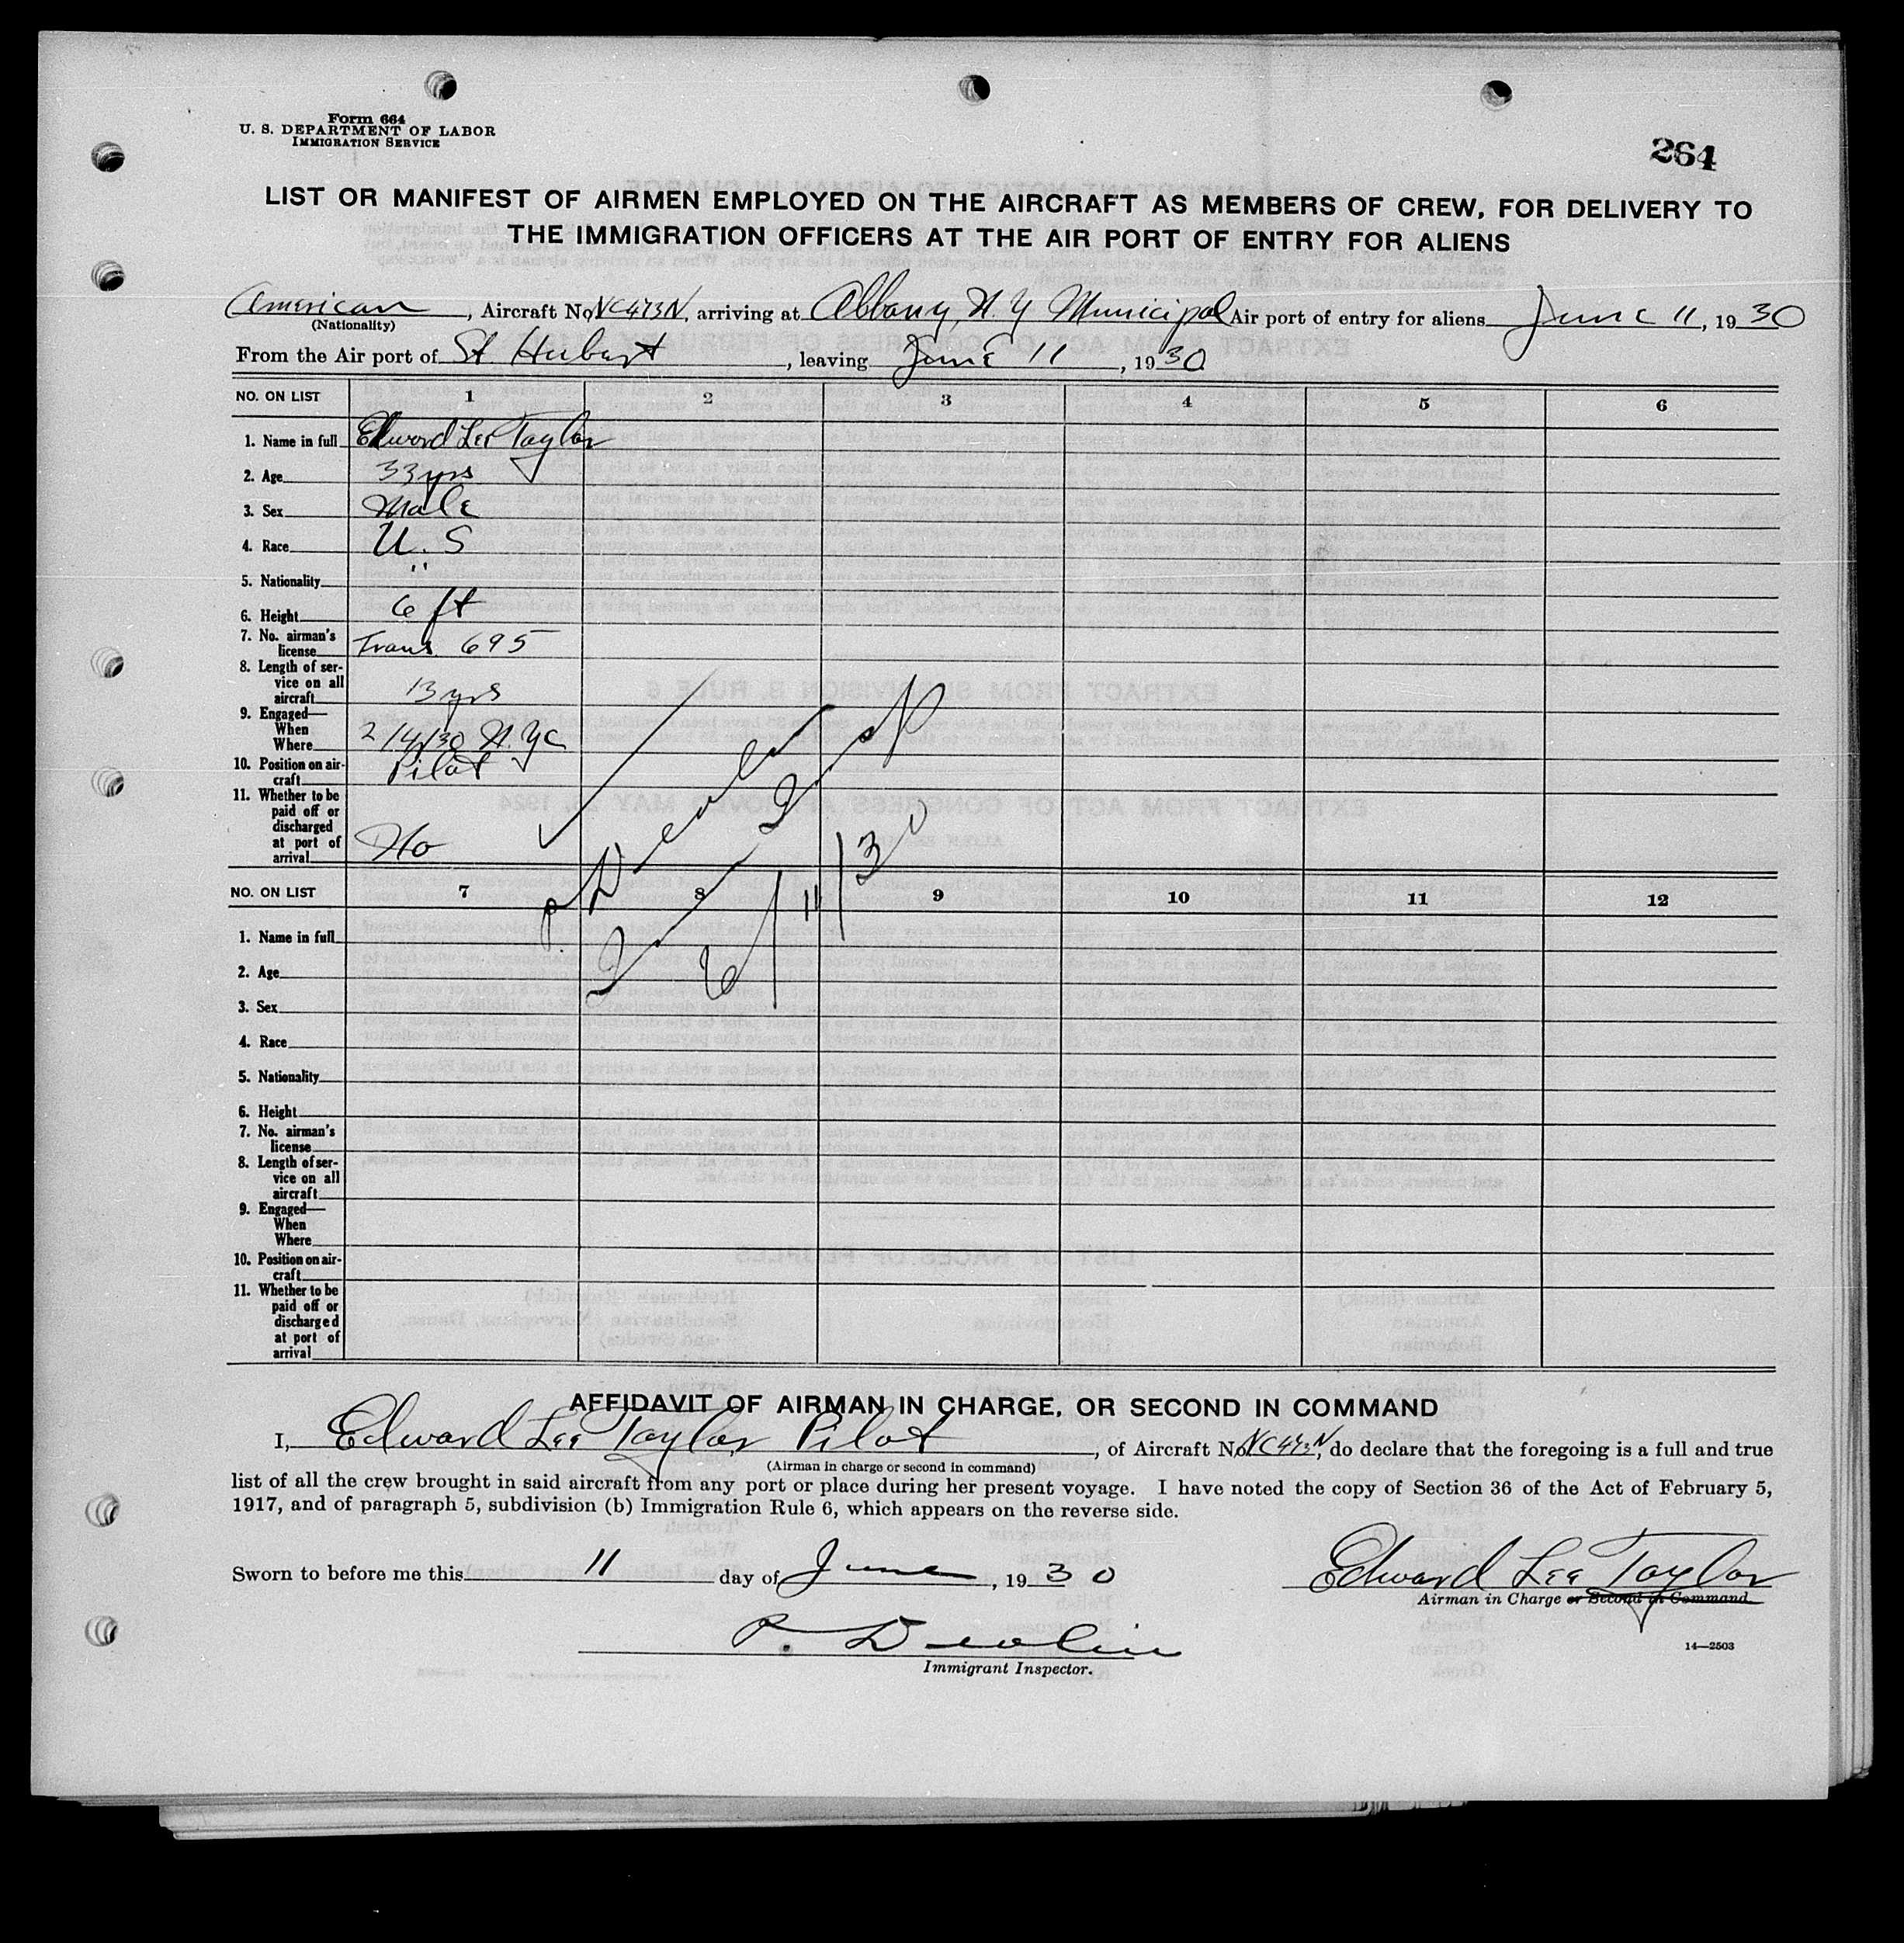 Form 664
U. S. DEPARTMENT OF LABOR
IMMIGRATION SERVICE
264
LIST OR MANIFEST OF AIRMEN EMPLOYED ON THE AIRCRAFT AS MEMBERS OF CREW, FOR DELIVERY TO
THE IMMIGRATION OFFICERS AT THE AIR PORT OF ENTRY FOR ALIENS
American, Aircraft No. NC473N, arriving at Albany, N. Y Municipal Air port of entry for aliens June 11, 1930
(Nationality)
From the Air port of St Hubert, leaving June 11, 1930
NO. ON LIST 1 2 3 4 5 6
1. Name in full Edward Lee Taylor
2. Age 33 yrs
3. Sex Male
4. Race U. S
5. Nationality "
6. Height 6 ft
7. No. airman's
license Trans 695
8. Length of ser-
vice on all
aircraft 13 yrs
9. Engaged—
When
Where 2/4/30 N. Y C
10. Position on air-
craft Pilot
11. Whether to be
paid off or
discharged
at port of
arrival No
P. Devlin
Insp
6/11/30
NO. ON LIST 7 8 9 10 11 12
1. Name in full
2. Age
3. Sex
4. Race
5. Nationality
6. Height
7. No. airman's
license
8. Length of ser-
vice on all
aircraft
9. Engaged—
When
Where
10. Position on air-
craft
11. Whether to be
paid off or
discharged
at port of
arrival
AFFIDAVIT OF AIRMAN IN CHARGE, OR SECOND IN COMMAND
I, Edward Lee Taylor, Pilot, of Aircraft No. NC473N, do declare that the foregoing is a full and true
(Airman in charge or second in command)
list of all the crew brought in said aircraft from any port or place during her present voyage. I have noted the copy of Section 36 of the Act of February 5,
1917, and of paragraph 5, subdivision (b) Immigration Rule 6, which appears on the reverse side.
Sworn to before me this 11 day of June, 1930
Edward Lee Taylor
Airman in Charge or Second in Command
P. Devlin
Immigrant Inspector.
14—2503